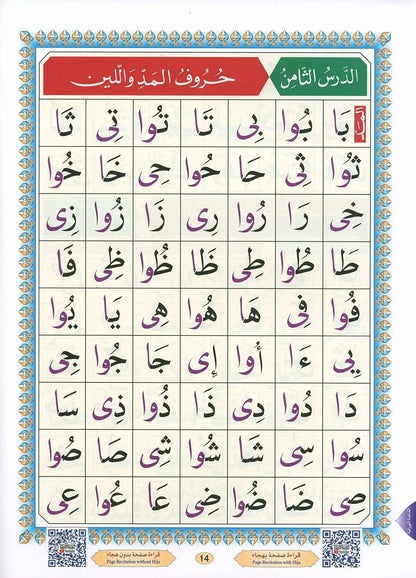 الدَّرسُ الثَّامِنُ حُرُوفُ المَدِّ وَاللِّين
المَدّ
بَا بُوا بِى تَا تُوا تِى ثَا
ثُوا ثِى حَا حُوا حِى خَا خُوا
خِى رَا رُوا رِى زَا زُوا زِى
طَا طُوا طِى ظَا ظُوا ظِى فَا
فُوا فِى هَا هُوا هِى يَا يُوا
يِى ءَا أُوا إِى جَا جُوا جِى
دَا دُوا دِى ذَا ذُوا ذِى سَا
سُوا سِى شَا شُوا شِى صَا صُوا
صِى ضَا ضُوا ضِى عَا عُوا عِى
قراءة صفحة بهجاء 14 قراءة صفحة بدون هجاء
Page Recitation with Hija Page Recitation without Hija